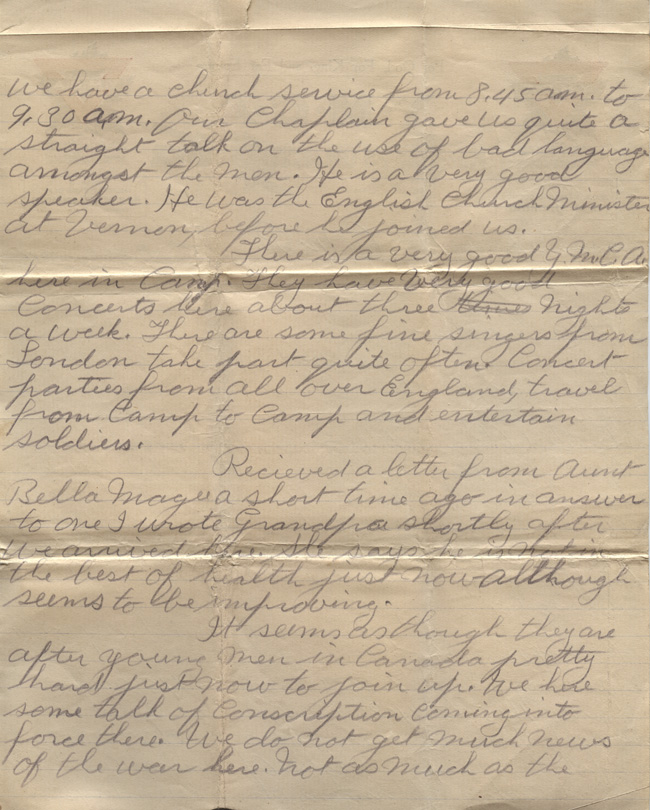 We have a church service from 8.45 a.m. to
9.30 a.m. Our Chaplain gave us quite a
straight talk on the use of bad language
amongst the men. He is a very good
speaker. He was the English Church Minister
at Vernon, before he joined us.
There is a very good Y.M.C.A.
here in Camp. They have very good
Concerts here about three times nights
a week. There are some fine singers from
London take part quite often. Concert
parties from all over England, travel
from Camp to Camp and entertain
soldiers.
Recieved a letter from Aunt
Bella Magee a short time ago in answer
to one I wrote Grandpa shortly after
we arrived here. She says he is not in
the best of health just now although
seems to be improving.
It seems as though they are
after young men in Canada pretty
hard just now to join up. We here
some talk of Conscription coming into
force there. We do not get much news
of the war here. Not as much as the